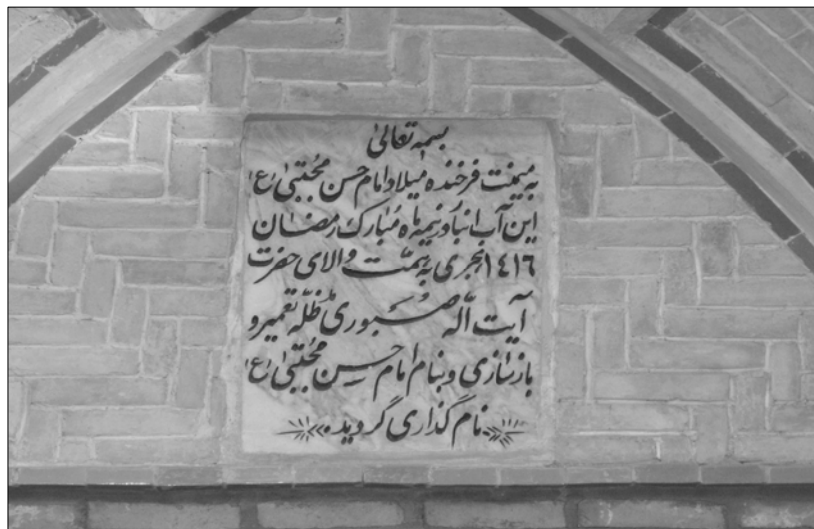 بسمه تعالیٰ
به میمنت فرخنده میلاد امام حسن مجتبیٰ (ع)
این آب انبار در نیمه ماه مبارک رمضان
١٤١٦ هجری به همّت والای حضرت
آیت الّه صبوری مدّ ظلّه تعمیر و
بازسازی و بنام امام حسن مجتبیٰ (ع)
نام گذاری گردیده